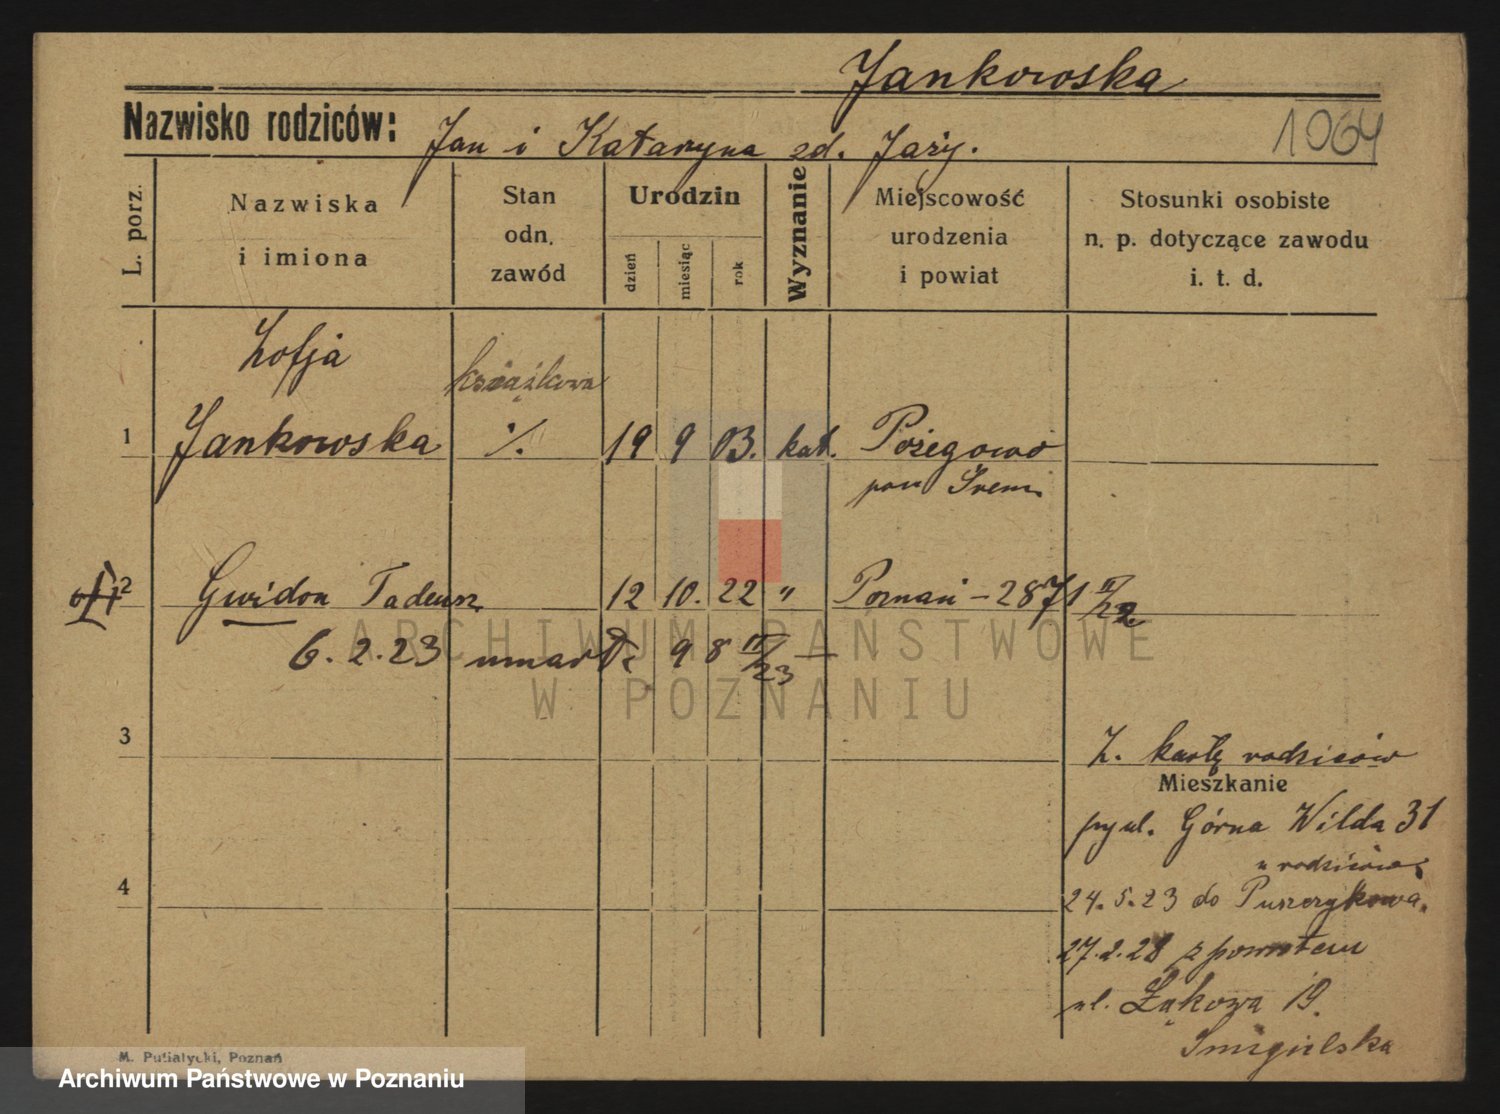 Jankowska
Nazwisko rodziców: Jan i Katarzyna zd. Jaży.
1064
L. porz.
Nazwiska i imiona
Stan odn. zawód
Urodzin
dzień
miesiąc
rok
Wyznanie
Miejscowość urodzenia i powiat
Stosunki osobiste n. p. dotyczące zawodu i. t. d.
Zofja
książkowa
1 Jankowska ./. 19 9 03. kat. Pożegowo
pow Śrem
2 Gwidon Tadeusz 12 10. 22 " Poznań - 2871 II/22
6. 2. 23 umarł 98 II/23 —
ARCHIWUM PAŃSTWOWE
W POZNANIU
3
Z. kartę rodziców
Mieszkanie
przy ul. Górna Wilda 31
u rodziców
4
24. 5. 23 do Puszczykowa.
27. 2. 28 z powrotem
ul. Łąkowa 19.
Smigielska
M. Putiatycki, Poznań
Archiwum Państwowe w Poznaniu